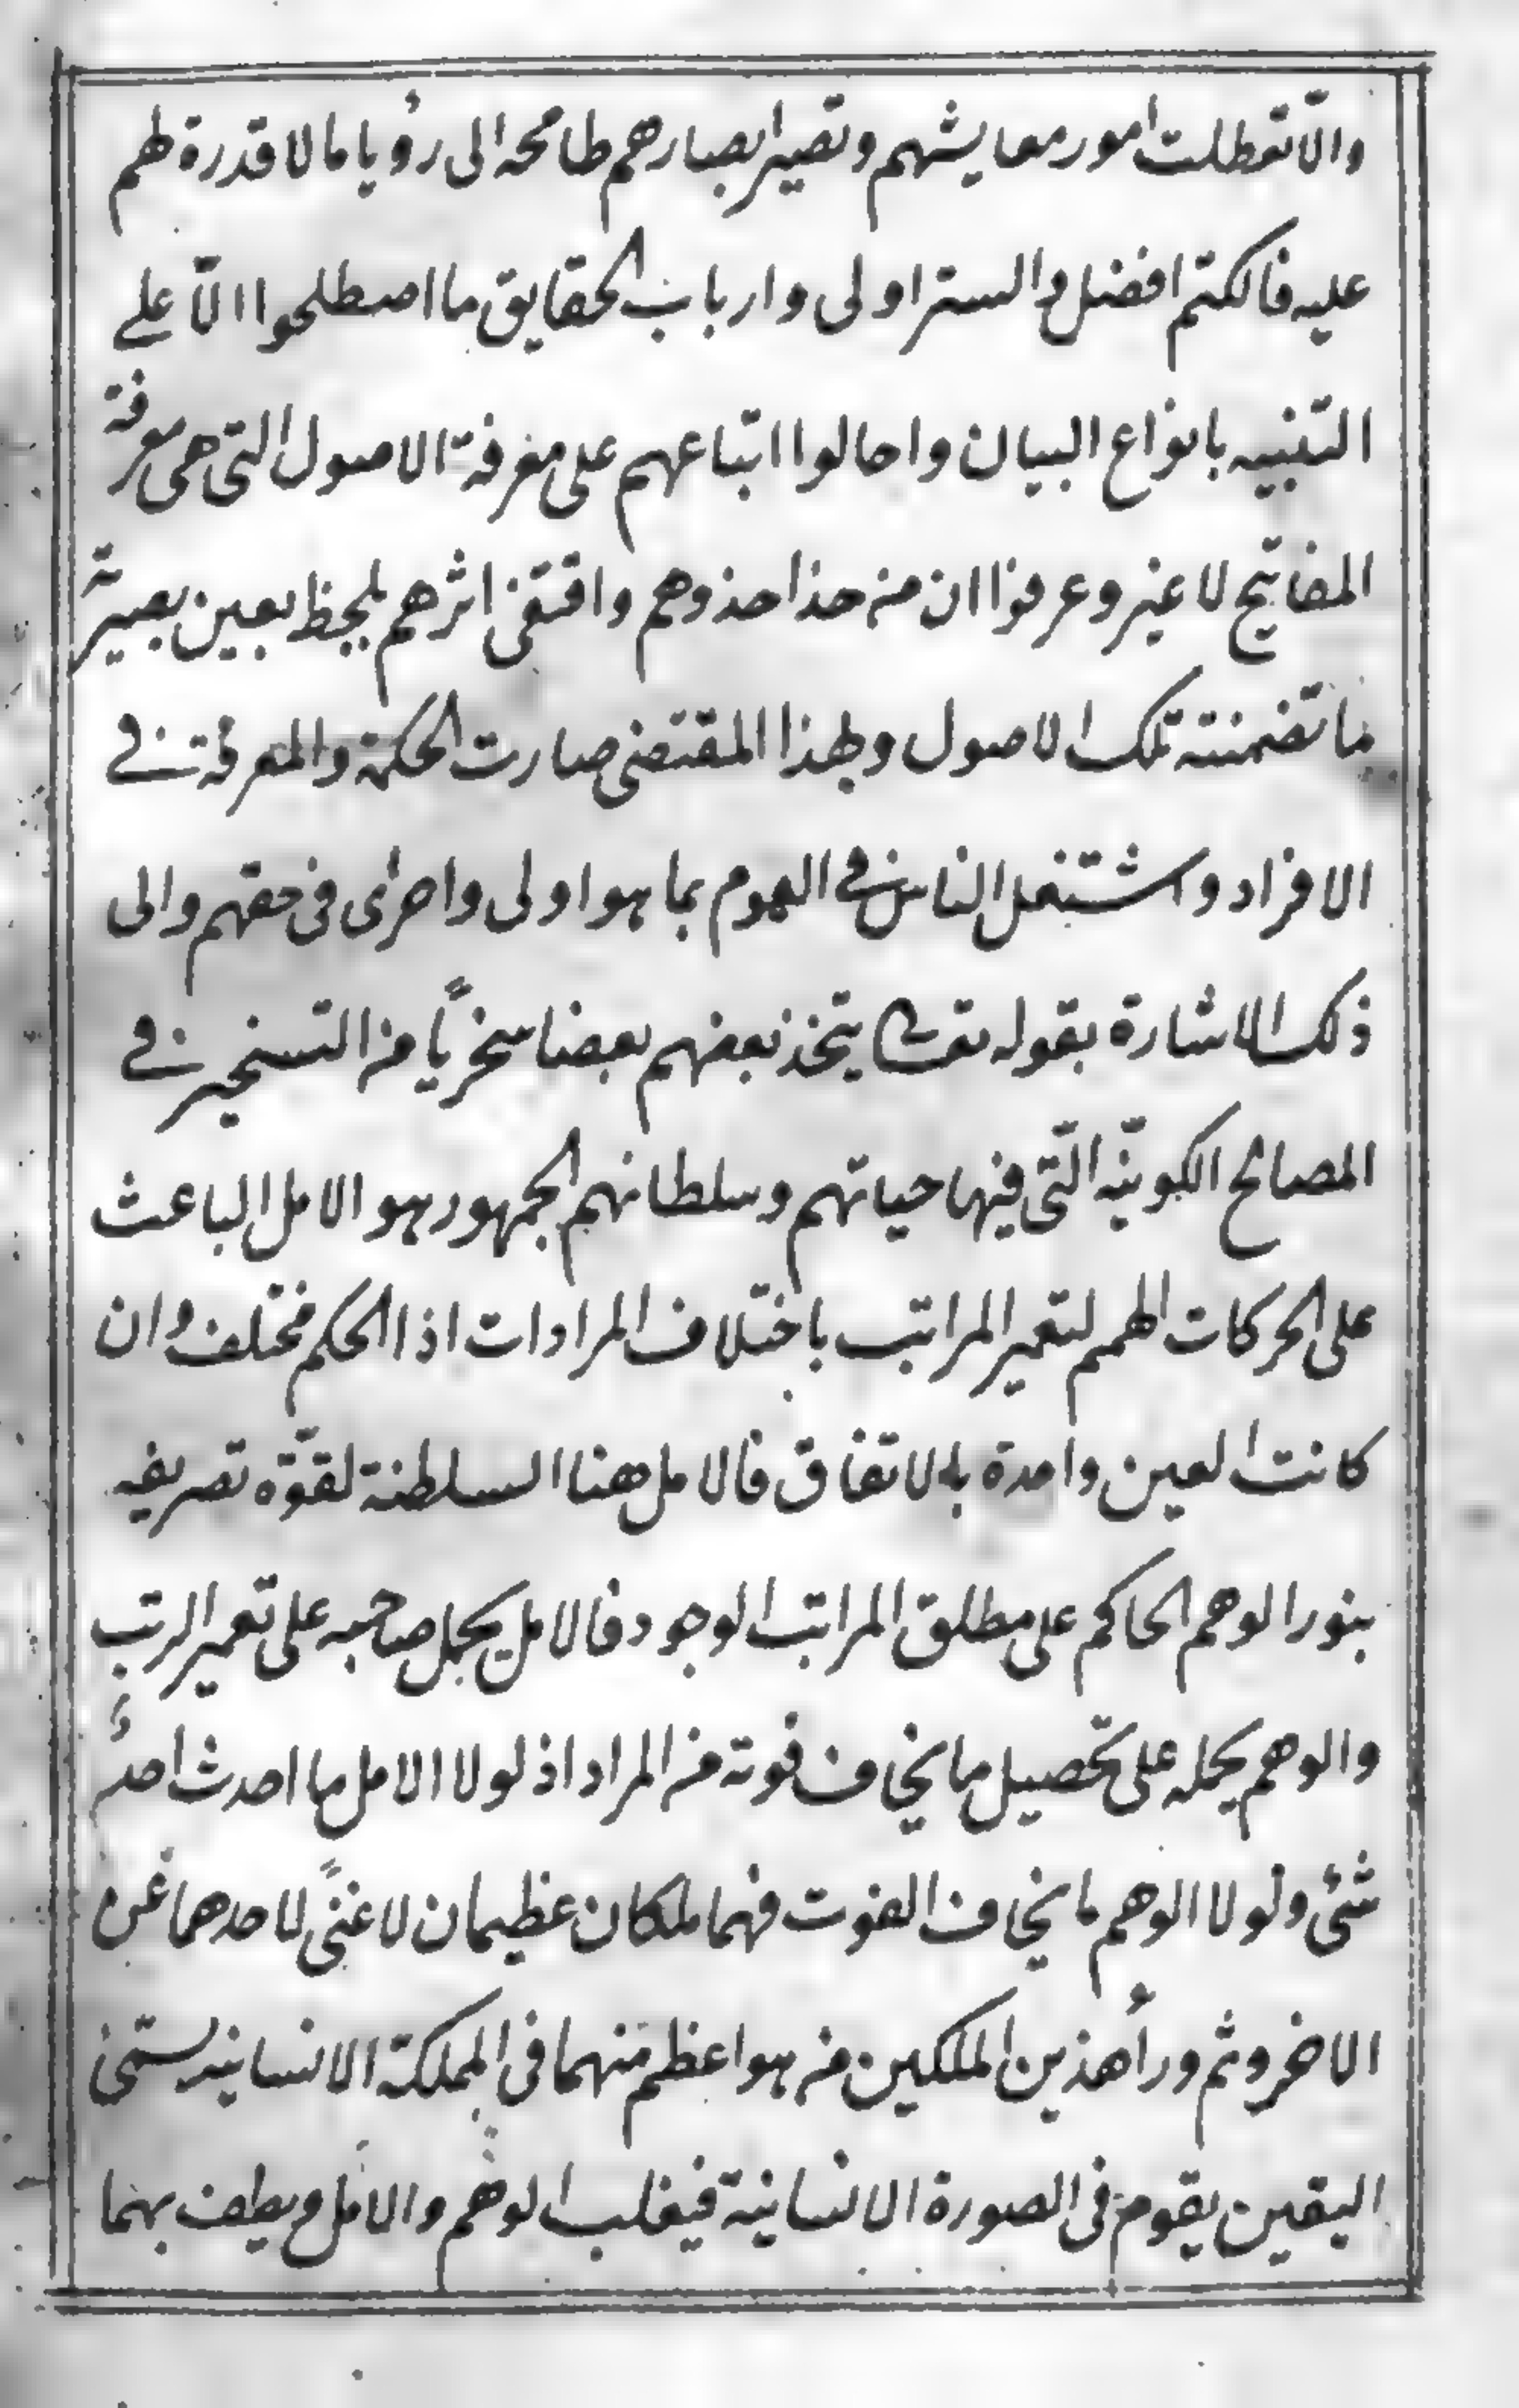 والّا تعطلت امور معايشهم وتصير ابصارهم طامحه الى رؤيا ما لا قدرة لهم
عليه فالكتم افضل والستر اولى وارباب الحقايق ما اصطلحوا الّا على
التنبيه بانواع البيان واحالوا اتباعهم على معرفة الاصول التى هى معرفة
المفاتيح لا غير وعرفوا ان من حذا حذوهم واقتفى اثرهم يلحظ بعين بصيرته
ما تضمنته تلك الاصول ولهذا المقتضى صارت الحكمة والمعرفة فى
الافراد واشتغل الناس فى العموم بما هو اولى واحرى فى حقهم والى
ذلك الاشارة بقوله تعالى يتخذ بعضهم بعضا سخريًا من التسخير فى
المصالح الكونيّه الّتى فيها حياتهم وسلطانهم الجمهور هو الامل الباعث
على الحركات الهمم لتعمير المراتب باختلاف المرادات اذا الحكم مختلف وان
كانت العين واحدة بالاتفاق فالامل هنا السلطنة لقوّة تصريفه
بنور الوهم الحاكم على مطلق المراتب الوجود فالامل يحمل صاحبه على تعمير الرتب
والوهم يحمله على تحصيل ما يخاف فوته من المراد اذ لولا الامل ما احدث احدٌ
شئى ولولا الوهم ما يخاف الفوت فهما ملكان عظيمان لا غنىً لاحدهما عن
الاخر وثم ورأ هذين الملكين من هو اعظم منهما فى المملكة الانسانيه يسمّى
اليقين يقوم فى الصورة الانسانية فيغلب الوهم والامل ويطف بهما